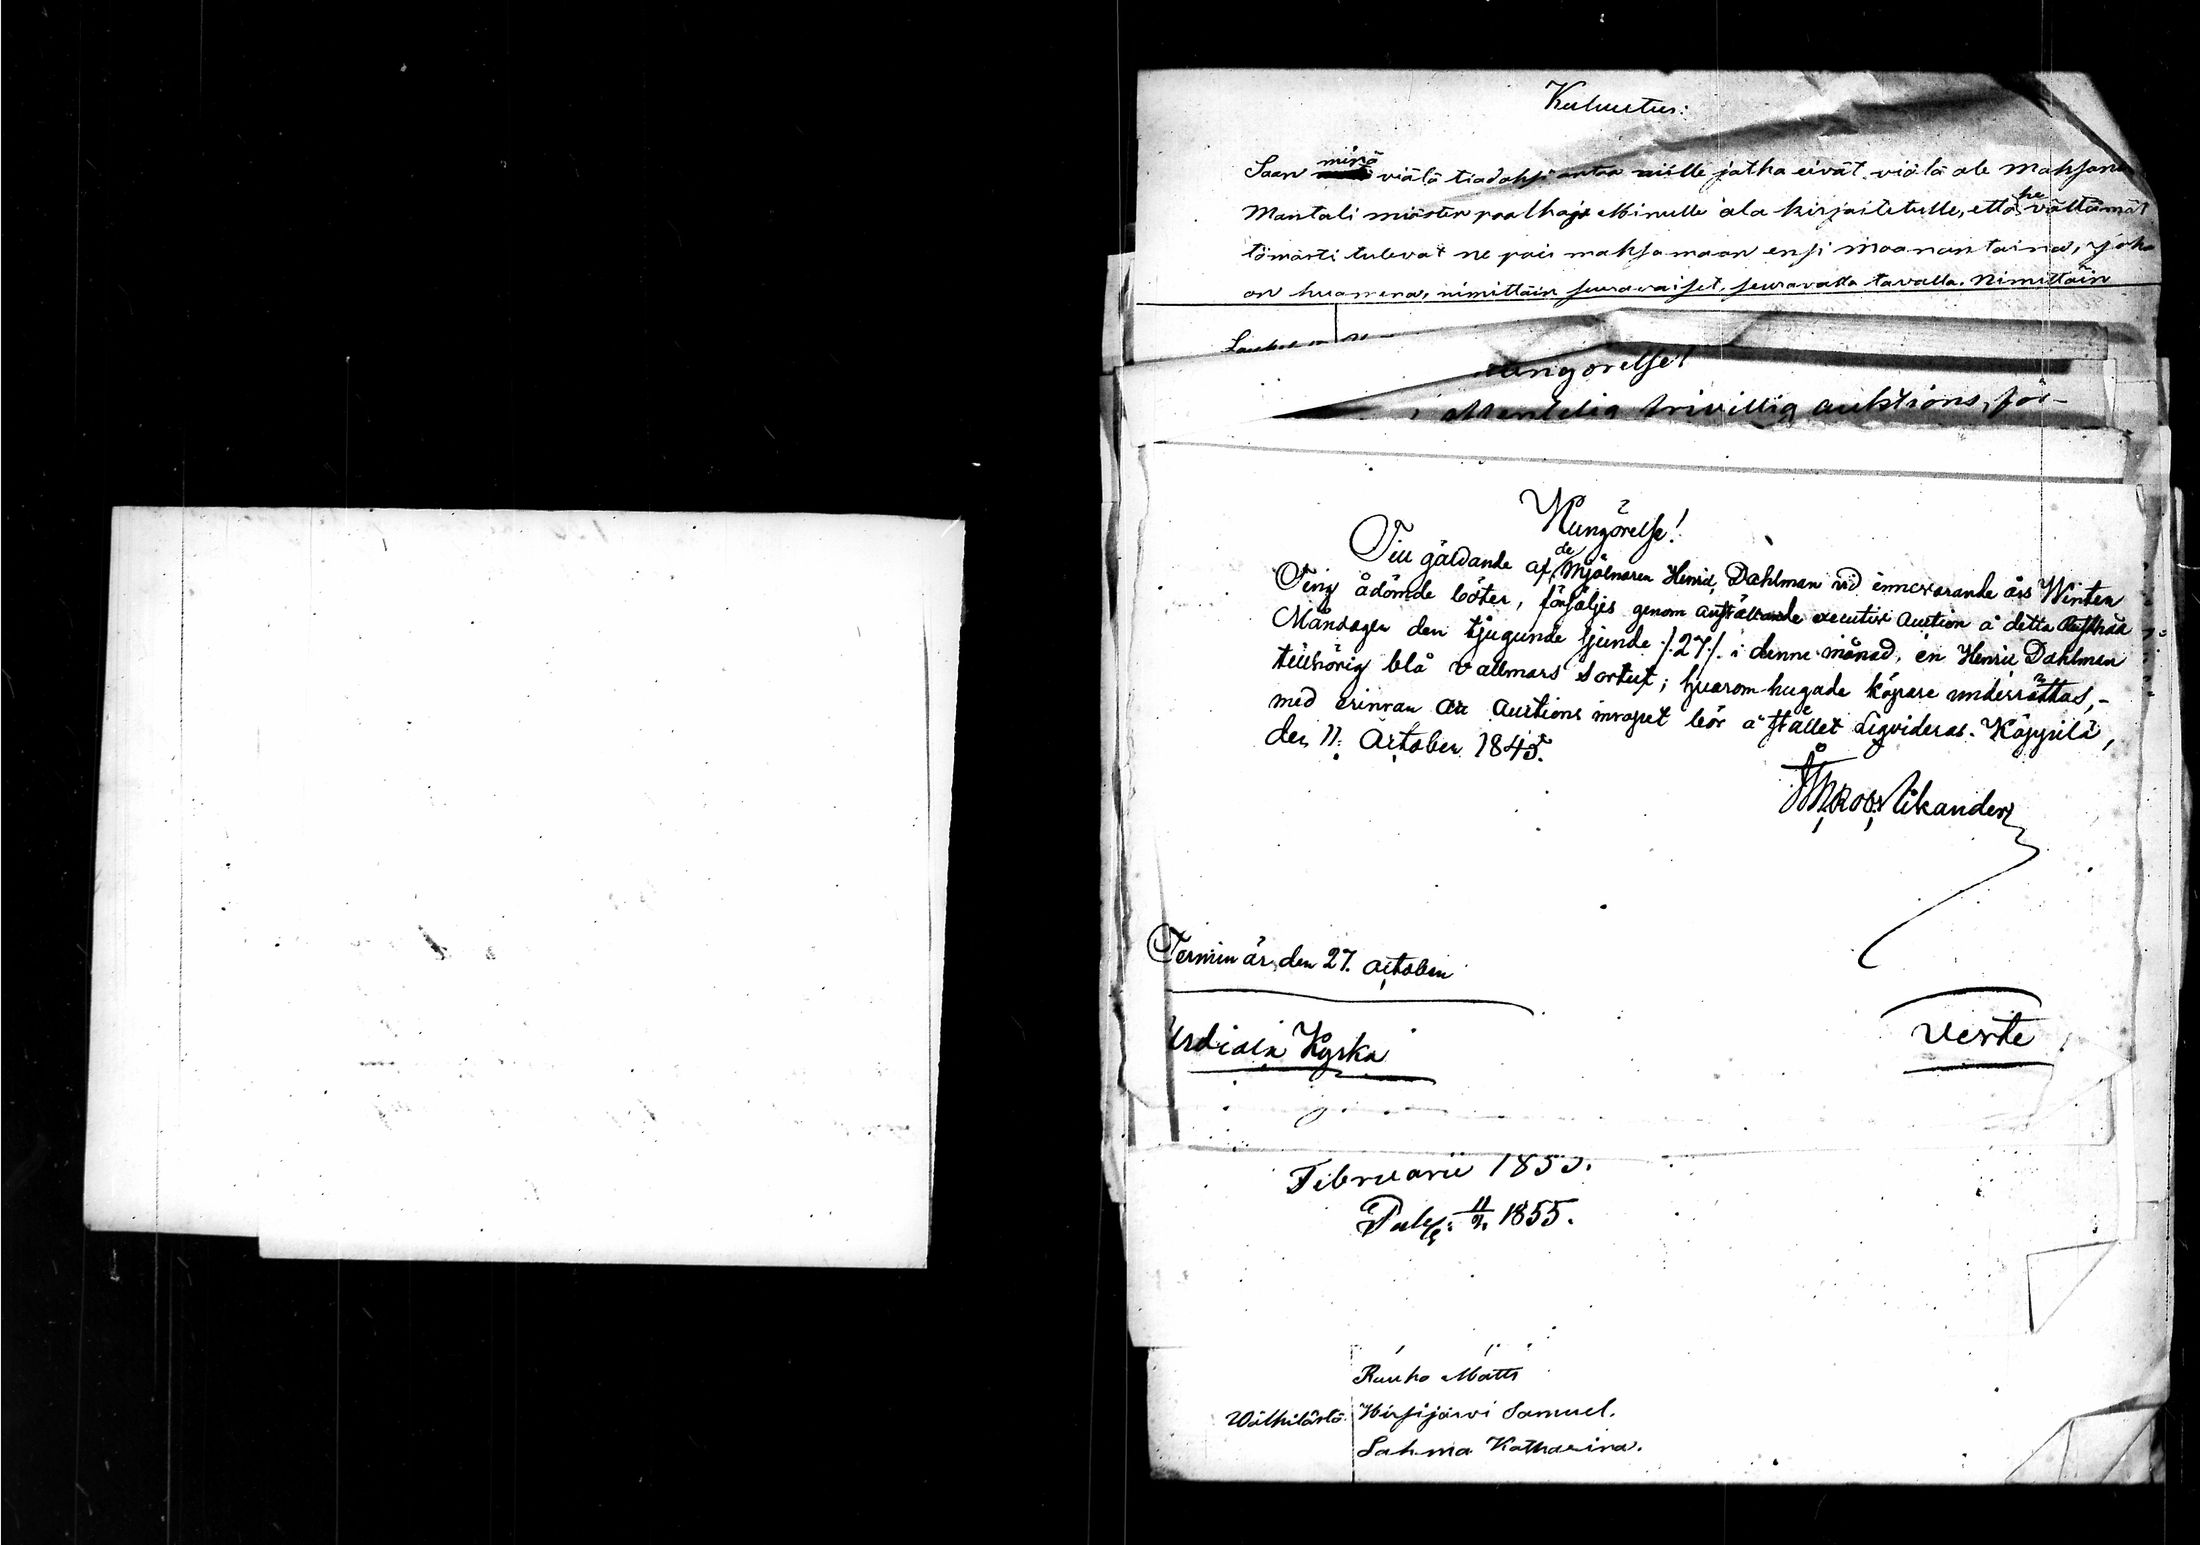 Kuluutus:
Saan minä viälä tiadoksi antaa niille jotka eivät viälä ole maksanu
Mantali miästen paalkaja Minulle ala kirjaitetulle, että he vältämät
tömästi tulevat ne pois maksamaan ensi maanantaina, joka
on huamena, nimittäin seuravaiset, seuravalla tavalla. Nimittäin
ungörelse!
frivillig auktions, för-
Kungörelse!
Till gäldande af de Mjölnaren Henric Dahlman vid innevarande års Winter
Ting ådömde böter, försäljes genom anställande executiv Auction å detta
Måndagen den tjugunde sjunde /:27:/ i denne månad, en Henric Dahlman
tillhörig blå vallmars Sortut; hvarom hugade köpare underrättas,-
med erinran att Auctions inropet bör å stället liqvideras. Köppilä,
den 11. October 1845.
Nikander
Termin är den 27. October
Urdiala Kyrka
Verte
Februarii 185
Publ: 11/2 1855.
Rauho Matts
Wälkilästä Hirsijärvi Samuel.
Sahma Katharina.